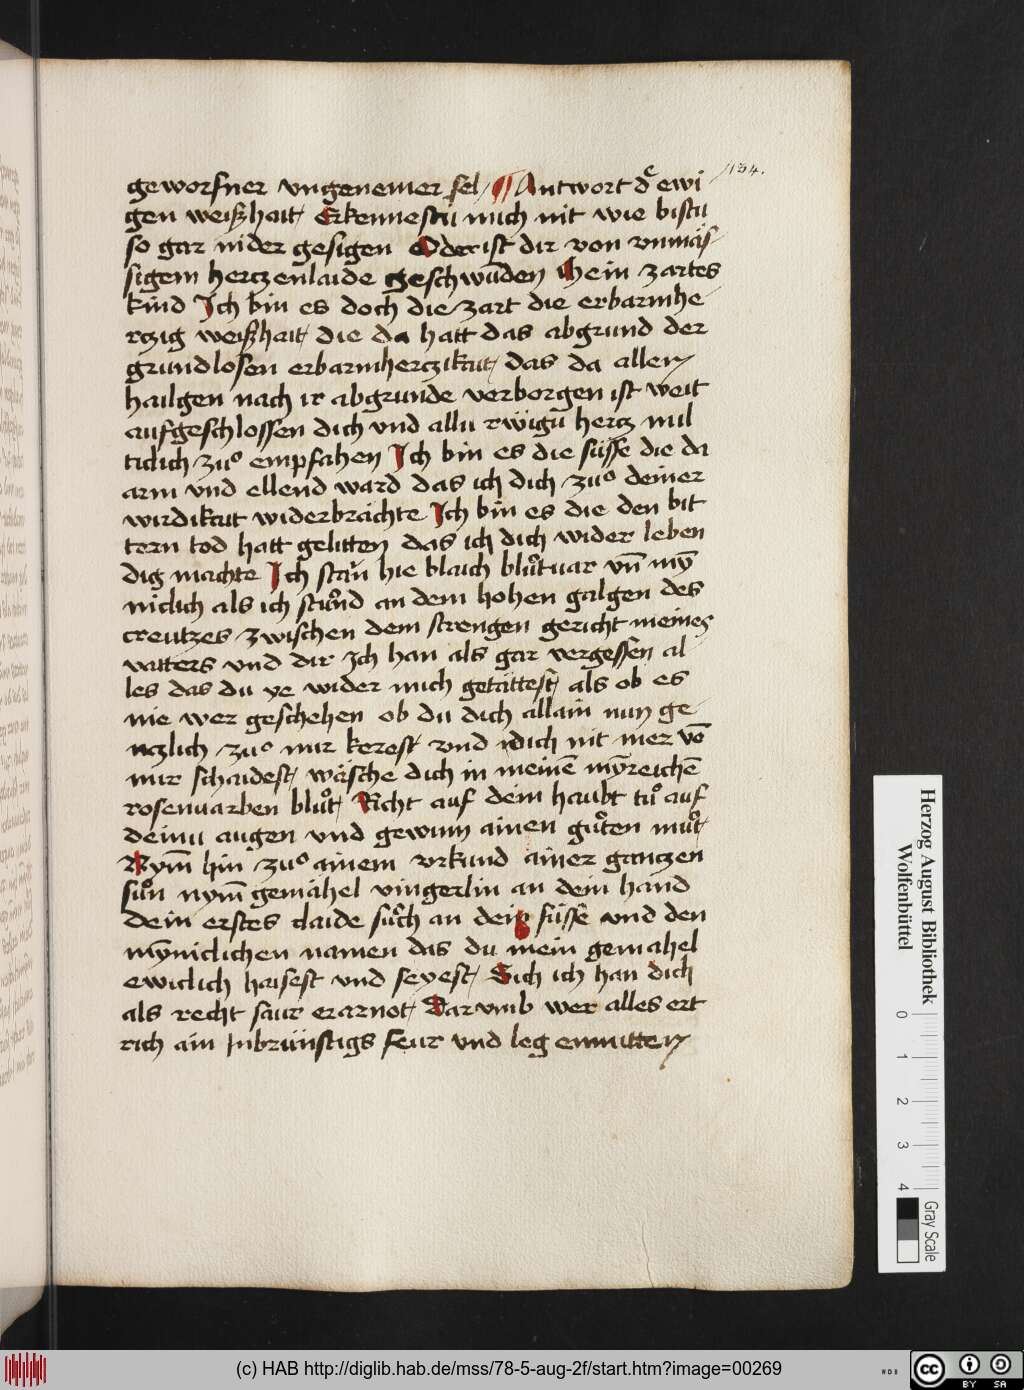 134.
geworfner vngenemer sel / ¶ Antwort d͛ ewi
gen weißhait / Erkennestu mich nit wie bistu
so gar nider gesigen Oder ist dir von vnmäs
sigem herczenlaide geschwūden Mein zartes
kind Ich bin es doch die zart die erbarmhe
rczig weißhait / die da hatt das abgrund der
grundlosen erbarmherczikait / das da allen
hailgen nach ir abgrunde verborgen ist weit
aufgeschlossen dich vnd allu rwïgū hercz mil
ticlich zuͦ empfahen Ich bin es die süsse die da
arm vnd ellend ward das ich dich zuͦ deiner
wirdikait widerbrächte Ich bin es die den bit
tern tod hatt gelitten das ich dich wider leben
dig machte Ich stan hie blaich bluͦtuar vn̄ mȳ
niclich als ich stuͦnd an dem hohen galgen des
creutzes zwischen dem strengen gericht meines
vatters vnd dir Ich han als gar vergessen al
les das du ye wider mich getättest / als ob es
nie wer geschehen ob du dich allain nun ge
nczlich zuͦ mir kerest vnd dich nit mer vō
mir schaidest / wäsche dich in meinē mȳreichē
rosenuarben bluͦt / Richt auf dein haubt tuͦ auf
deinu augen vnd gewinn ainen guͦten muͦt
Nym̄ hin zuͦ ainem vrkund ainer ganczen
suͦn nym̄ gemähel vingerlin an dein hand
dein erstes claide suͦch an dein füsse vnd den
mȳniclichen namen das du mein gemahel
ewiclich haisest vnd seyest / Sich ich han dich
als recht saur erarnot / Darvmb wer alles ert
rich ain Inbrünstigs feur vnd leg enmitten
Herzog August Bibliothek
Wolfenbüttel
0
1
2
3
4
Gray Scale
(c) HAB http://diglib.hab.de/mss/78-5-aug-2f/start.htm?image=00269
WDB
cc BY SA